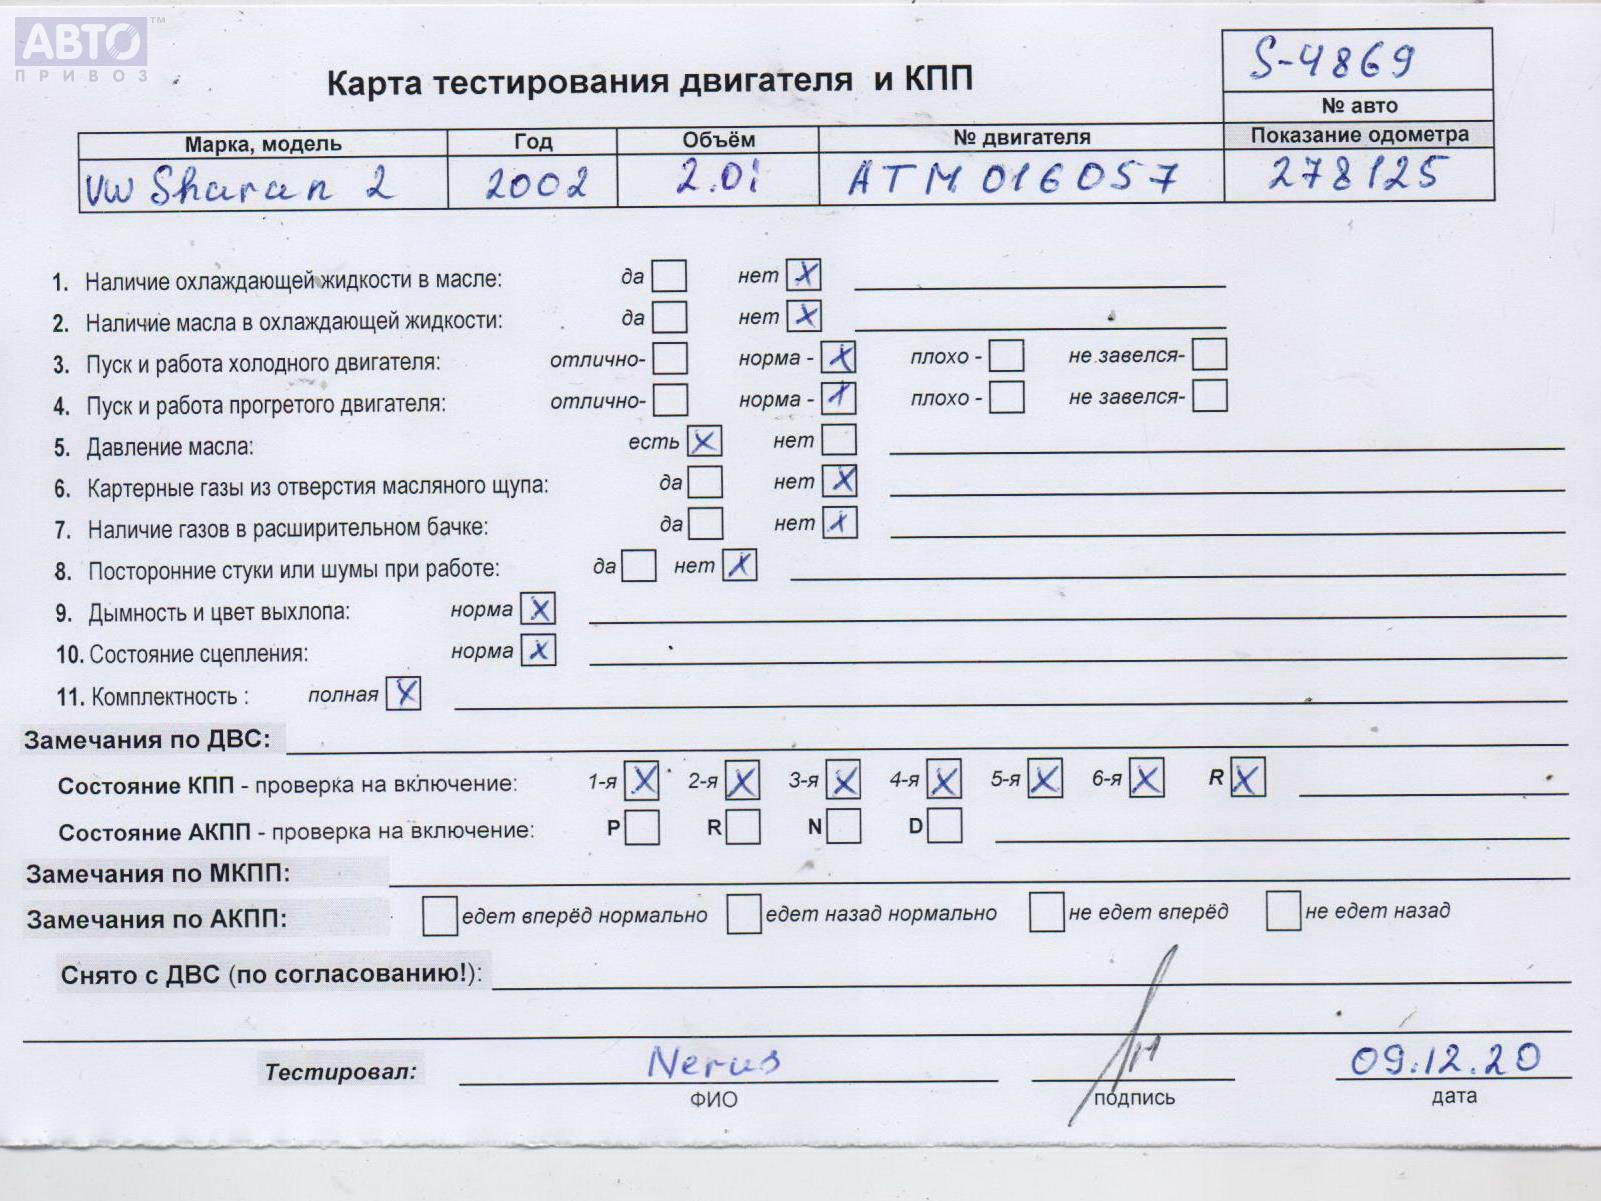 АВТО ™
ПРИВОЗ
S-4869
Карта тестирования двигателя и КПП
№ авто
Марка, модель Год Объём № двигателя Показание одометра
VW Sharan 2 2002 2.0i ATM 016057 278125
1. Наличие охлаждающей жидкости в масле: да нет X
2. Наличие масла в охлаждающей жидкости: да нет X
3. Пуск и работа холодного двигателя: отлично- норма - X плохо - не завелся-
4. Пуск и работа прогретого двигателя: отлично- норма - X плохо - не завелся-
5. Давление масла: есть X нет
6. Картерные газы из отверстия масляного щупа: да нет X
7. Наличие газов в расширительном бачке: да нет X
8. Посторонние стуки или шумы при работе: да нет X
9. Дымность и цвет выхлопа: норма X
10. Состояние сцепления: норма X
11. Комплектность : полная X
Замечания по ДВС:
Состояние КПП - проверка на включение: 1-я X 2-я X 3-я X 4-я X 5-я X 6-я X R X
Состояние АКПП - проверка на включение: P R N D
Замечания по МКПП:
Замечания по АКПП: едет вперёд нормально едет назад нормально не едет вперёд не едет назад
Снято с ДВС (по согласованию!):
Тестировал: Nerus 09.12.20
ФИО подпись дата